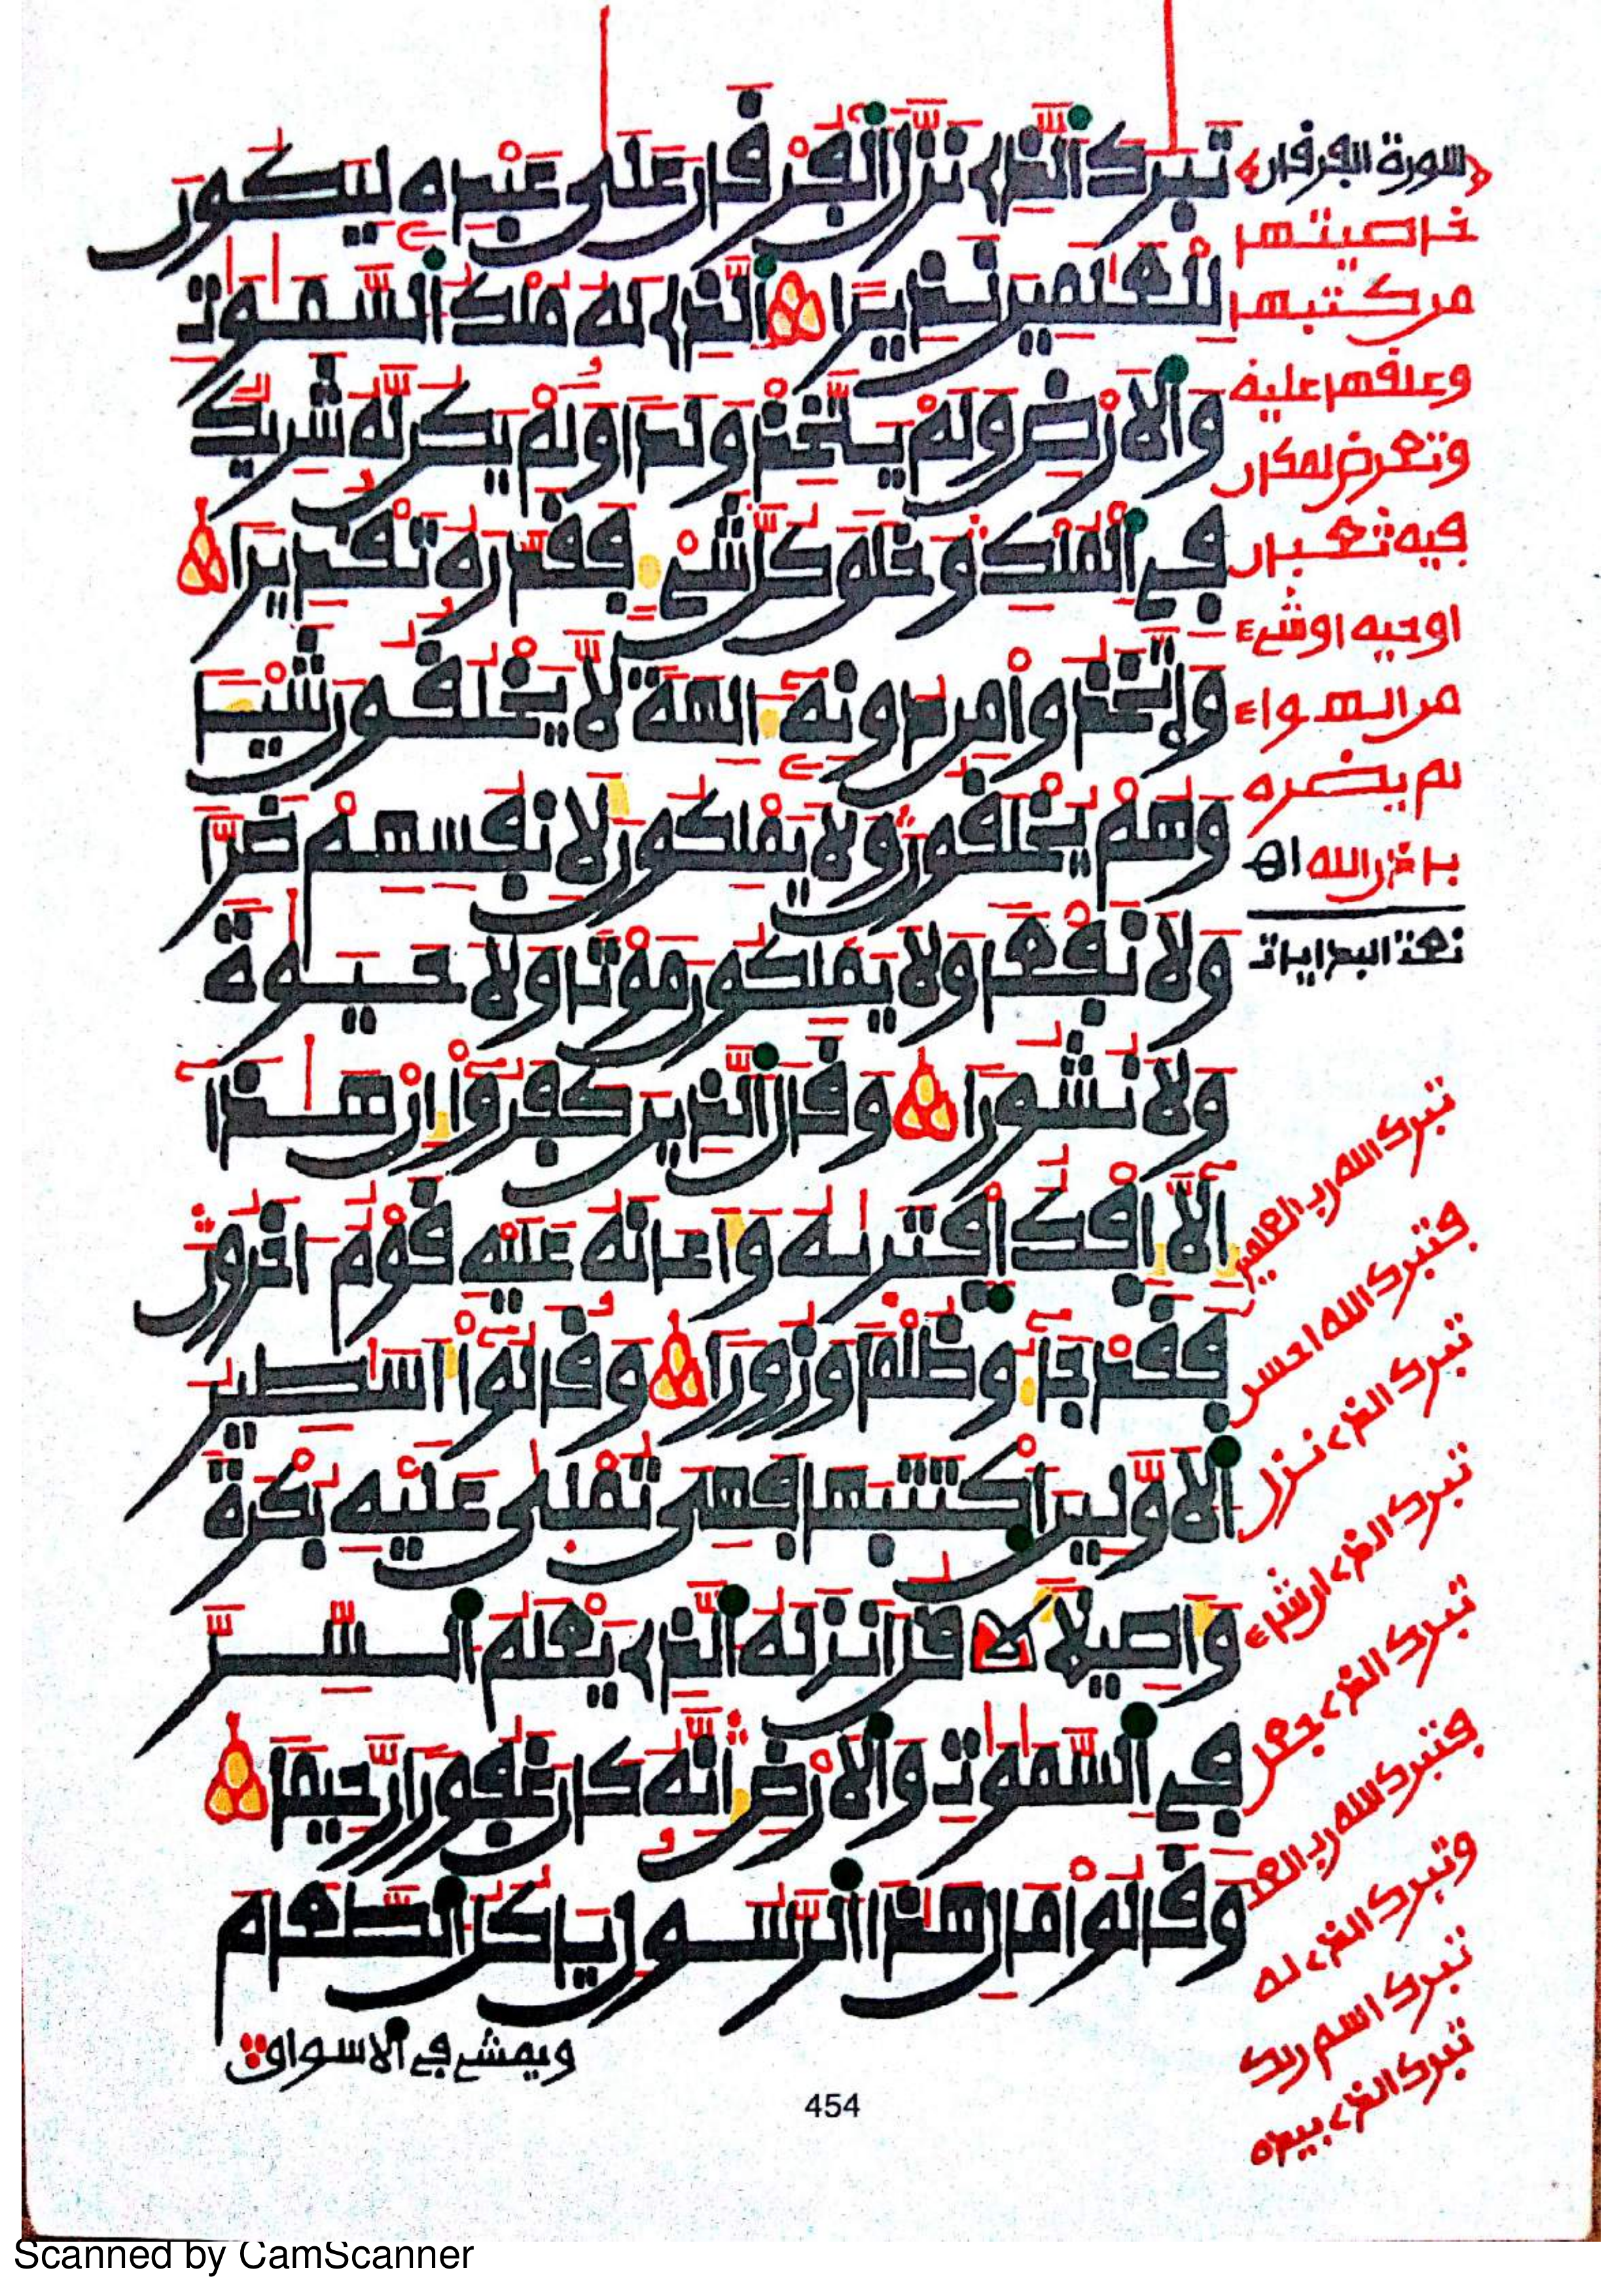 تَبَٰرَكَ ٱلذِے نَزَّلَ ٱلْفُرْقَانَ عَلَىٰ عَبْدِهِۦ لِيَكُونَ
لِلْعَٰلَمِينَ نَذِيراً ٱلذِے لَهُۥ مُلْكُ ٱلسَّمَٰوَٰتِ
وَٱلَارْضِ وَلَمْ يَتَّخِذْ وَلَداً وَلَمْ يَكُن لَّهُۥ شَرِيكٌ
فِے ٱلْمُلْكِ وَخَلَقَ كُلَّ شَےْءٍ فَقَدَّرَهُۥ تَقْدِيراً
وَاتَّخَذُواْ مِن دُونِهِۦٓ ءَالِهَةً لَّا يَخْلُقُونَ شَيْـٔاً
وَهُمْ يُخْلَقُونَ وَلَا يَمْلِكُونَ لِأَنفُسِهِمْ ضَرّاً
وَلَا نَفْعاً وَلَا يَمْلِكُونَ مَوْتاً وَلَا حَيَوٰةً
وَلَا نُشُوراً وَقَالَ ٱلذِينَ كَفَرُوٓاْ إِنْ هَٰذَآ
إِلَّآ إِفْكٌ اِفْتَرَىٰهُ وَأَعَانَهُۥ عَلَيْهِ قَوْمٌ ـاخَرُونَ
فَقَدْ جَآءُو ظُلْماً وَزُوراً وَقَالُوٓاْ أَسَٰطِيرُ
ٱلَاوَّلِينَ اَكْتَتَبَهَا فَهِىَ تُمْلَىٰ عَلَيْهِ بُكْرَةً
وَأَصِيلًا قُلَ اَنزَلَهُ ٱلذِے يَعْلَمُ ٱلسِّرَّ
فِے ٱلسَّمَٰوَٰتِ وَٱلَارْضِ إِنَّهُۥ كَانَ غَفُوراً رَّحِيماً
وَقَالُواْ مَالِ هَٰذَا ٱلرَّسُولِ يَاكُلُ ٱلطَّعَامَ
ويمشے فے ٱلاسواق
سورة الفرقان
خاصيتها
من كتبها
وعلقها عليه
وتعرض لمكان
فيه ثعبان
او حية او شےء
من الهواء
لم يضره
باذن الله اهـ
نعت البدايات
تبرك الله رب العلمين
فتبرك الله احسن
تبرك الذے نزل
تبرك الذے ان شاء
تبرك الذے جعل
فتبرك الله رب العـ
وتبرك الذے له
تبرك اسم ربك
تبرك الذے بيده
454
Scanned by CamScanner